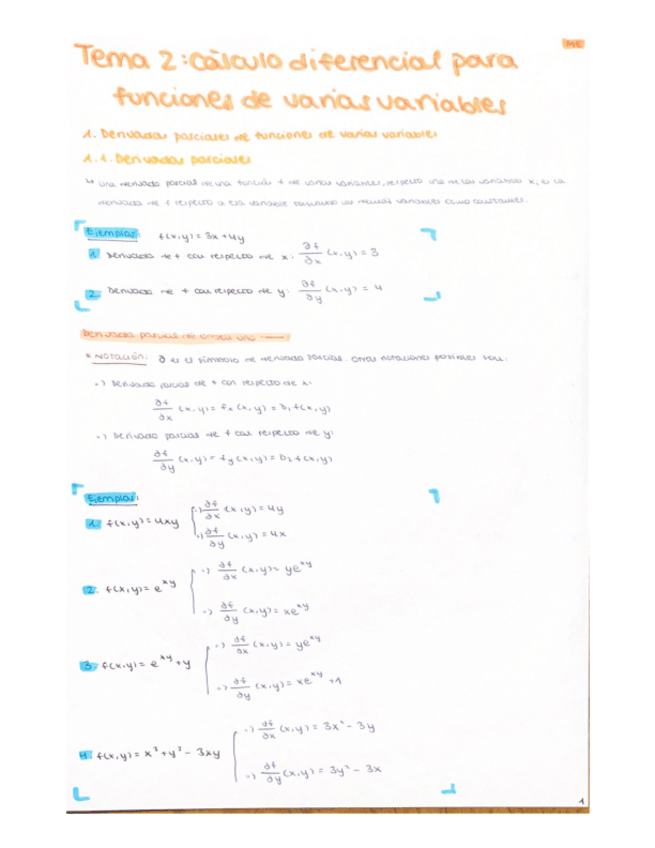 ME
Tema 2: Cálculo diferencial para
funciones de varias variables
1. Derivadas parciales de funciones de varias variables
1.1. Derivadas parciales
↳ una derivada parcial de una función f de varias variables, respecto una de las variables x, es la
derivada de f respecto a esa variable las demás variables como constantes.
Ejemplos: f(x,y) = 3x+4y
1. Derivada de f con respecto de x: ∂f/∂x (x,y) = 3
2. Derivada de f con respecto de y: ∂f/∂y (x,y) = 4
Derivada parcial de orden uno
* NOTACIÓN: ∂ es el símbolo de derivada parcial. Otras notaciones posibles son:
·) Derivada parcial de f con respecto de x:
∂f/∂x (x,y) = fx (x,y) = D₁ f(x,y)
·) Derivada parcial de f con respecto de y:
∂f/∂y (x,y) = fy (x,y) = D₂ f(x,y)
Ejemplos:
1. f(x,y) = 4xy ·) ∂f/∂x (x,y) = 4y
·) ∂f/∂y (x,y) = 4x
2. f(x,y) = e^xy ·) ∂f/∂x (x,y) = ye^xy
·) ∂f/∂y (x,y) = xe^xy
3. f(x,y) = e^xy + y ·) ∂f/∂x (x,y) = ye^xy
·) ∂f/∂y (x,y) = xe^xy + 1
4. f(x,y) = x³ + y³ - 3xy ·) ∂f/∂x (x,y) = 3x² - 3y
·) ∂f/∂y (x,y) = 3y² - 3x
1